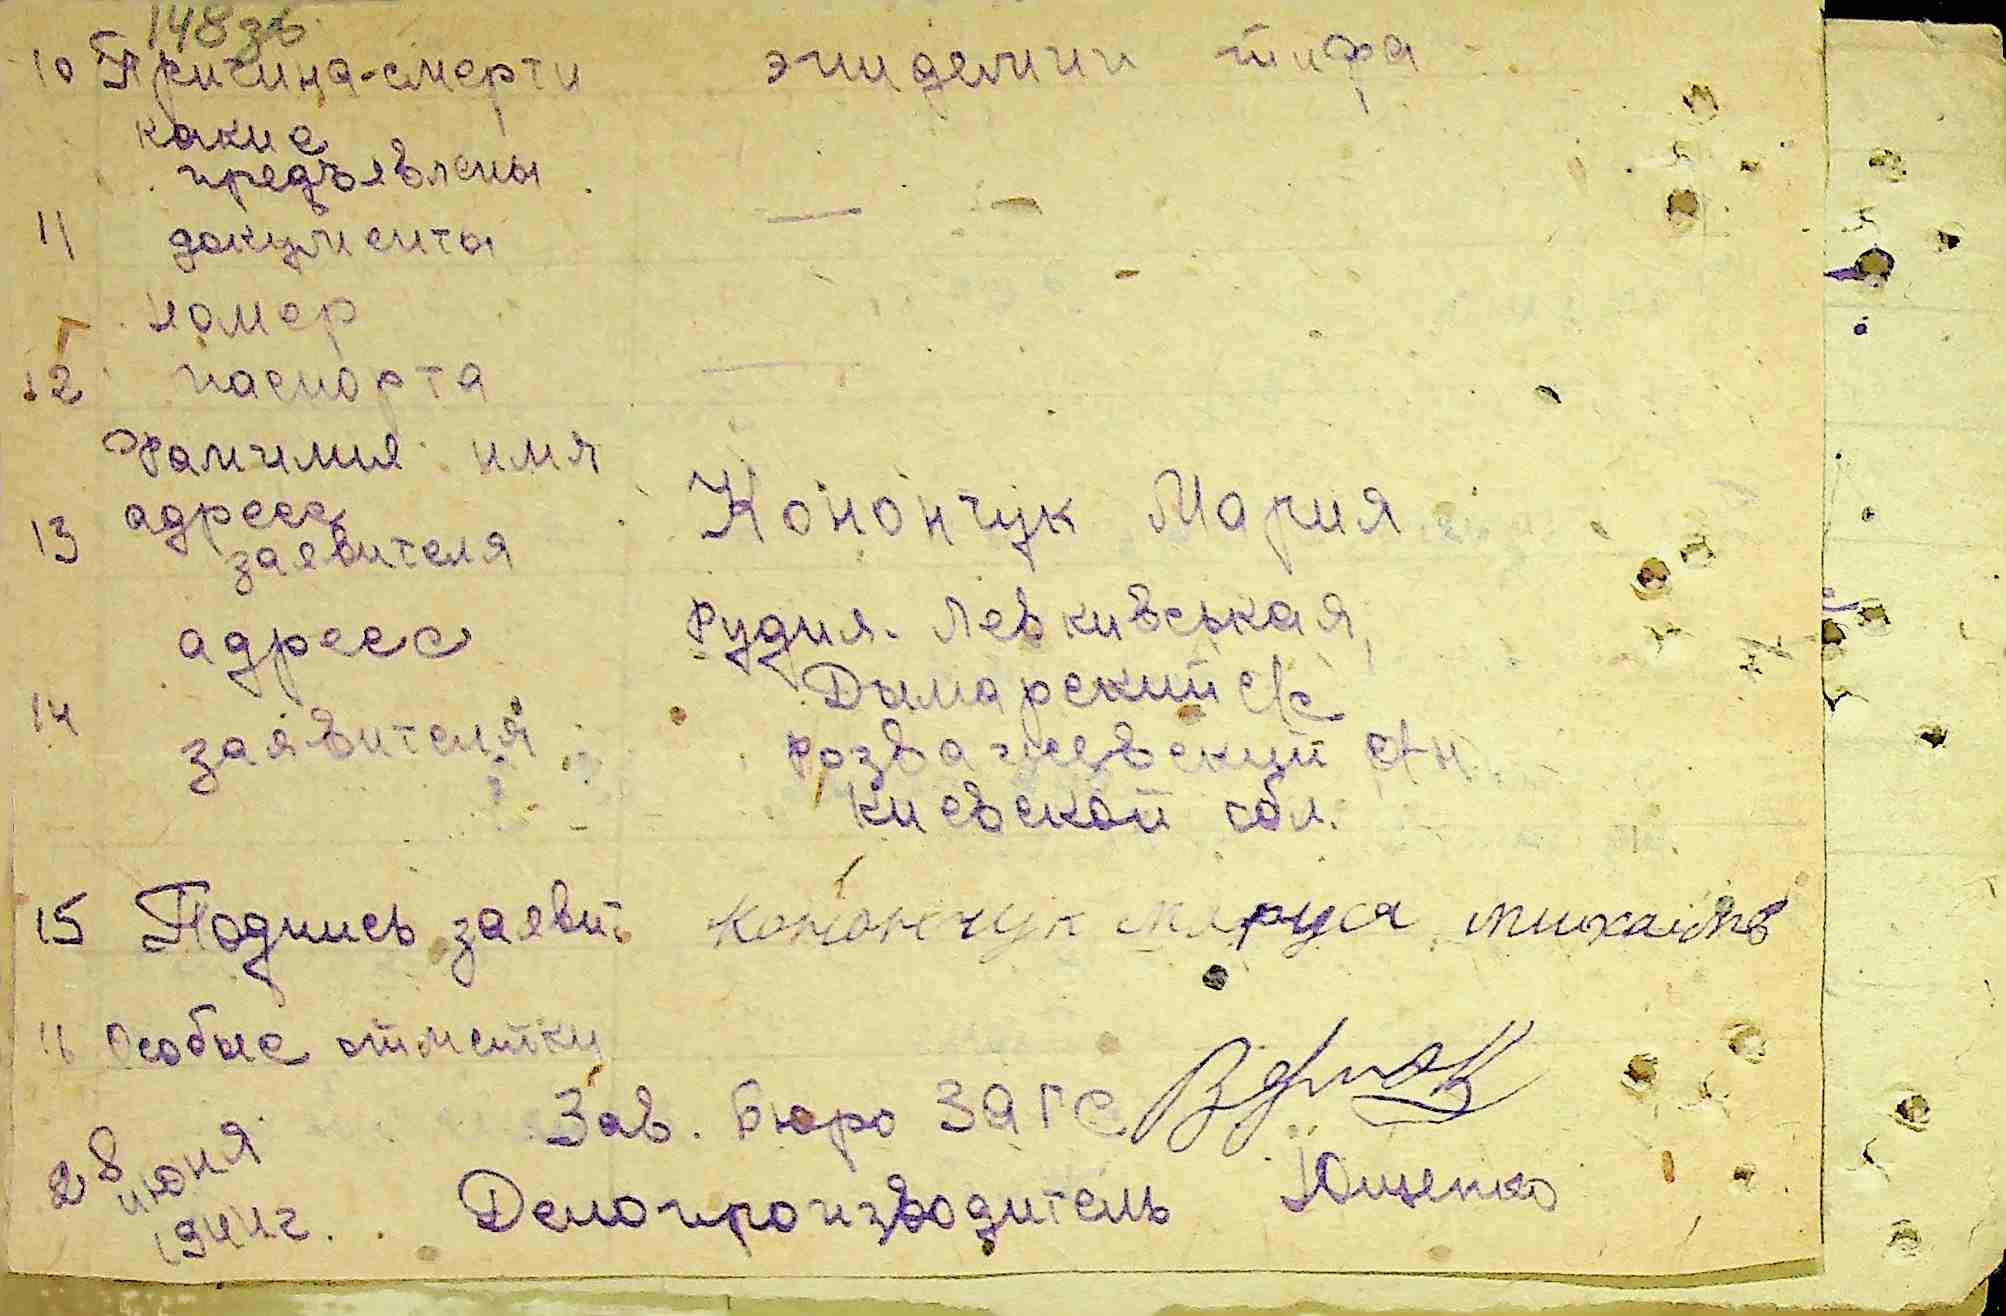 148зв
10 Причина-смерти эпидемии тифа
какие
предъявлены
11 документы
номер
12 паспорта
Фамилия имя
адресс
13 заявителя Конончук Мария
адресс Рудня. Левкивськая,
Дымарский с/с
14 заявителя Розважевский р-н
Киевской обл.
15 Подпись заявит Конончук Маруся
16 Особые отметки
Зав. Бюро ЗАГС
28 июня
1944г.
Делопроизводитель Ющенко